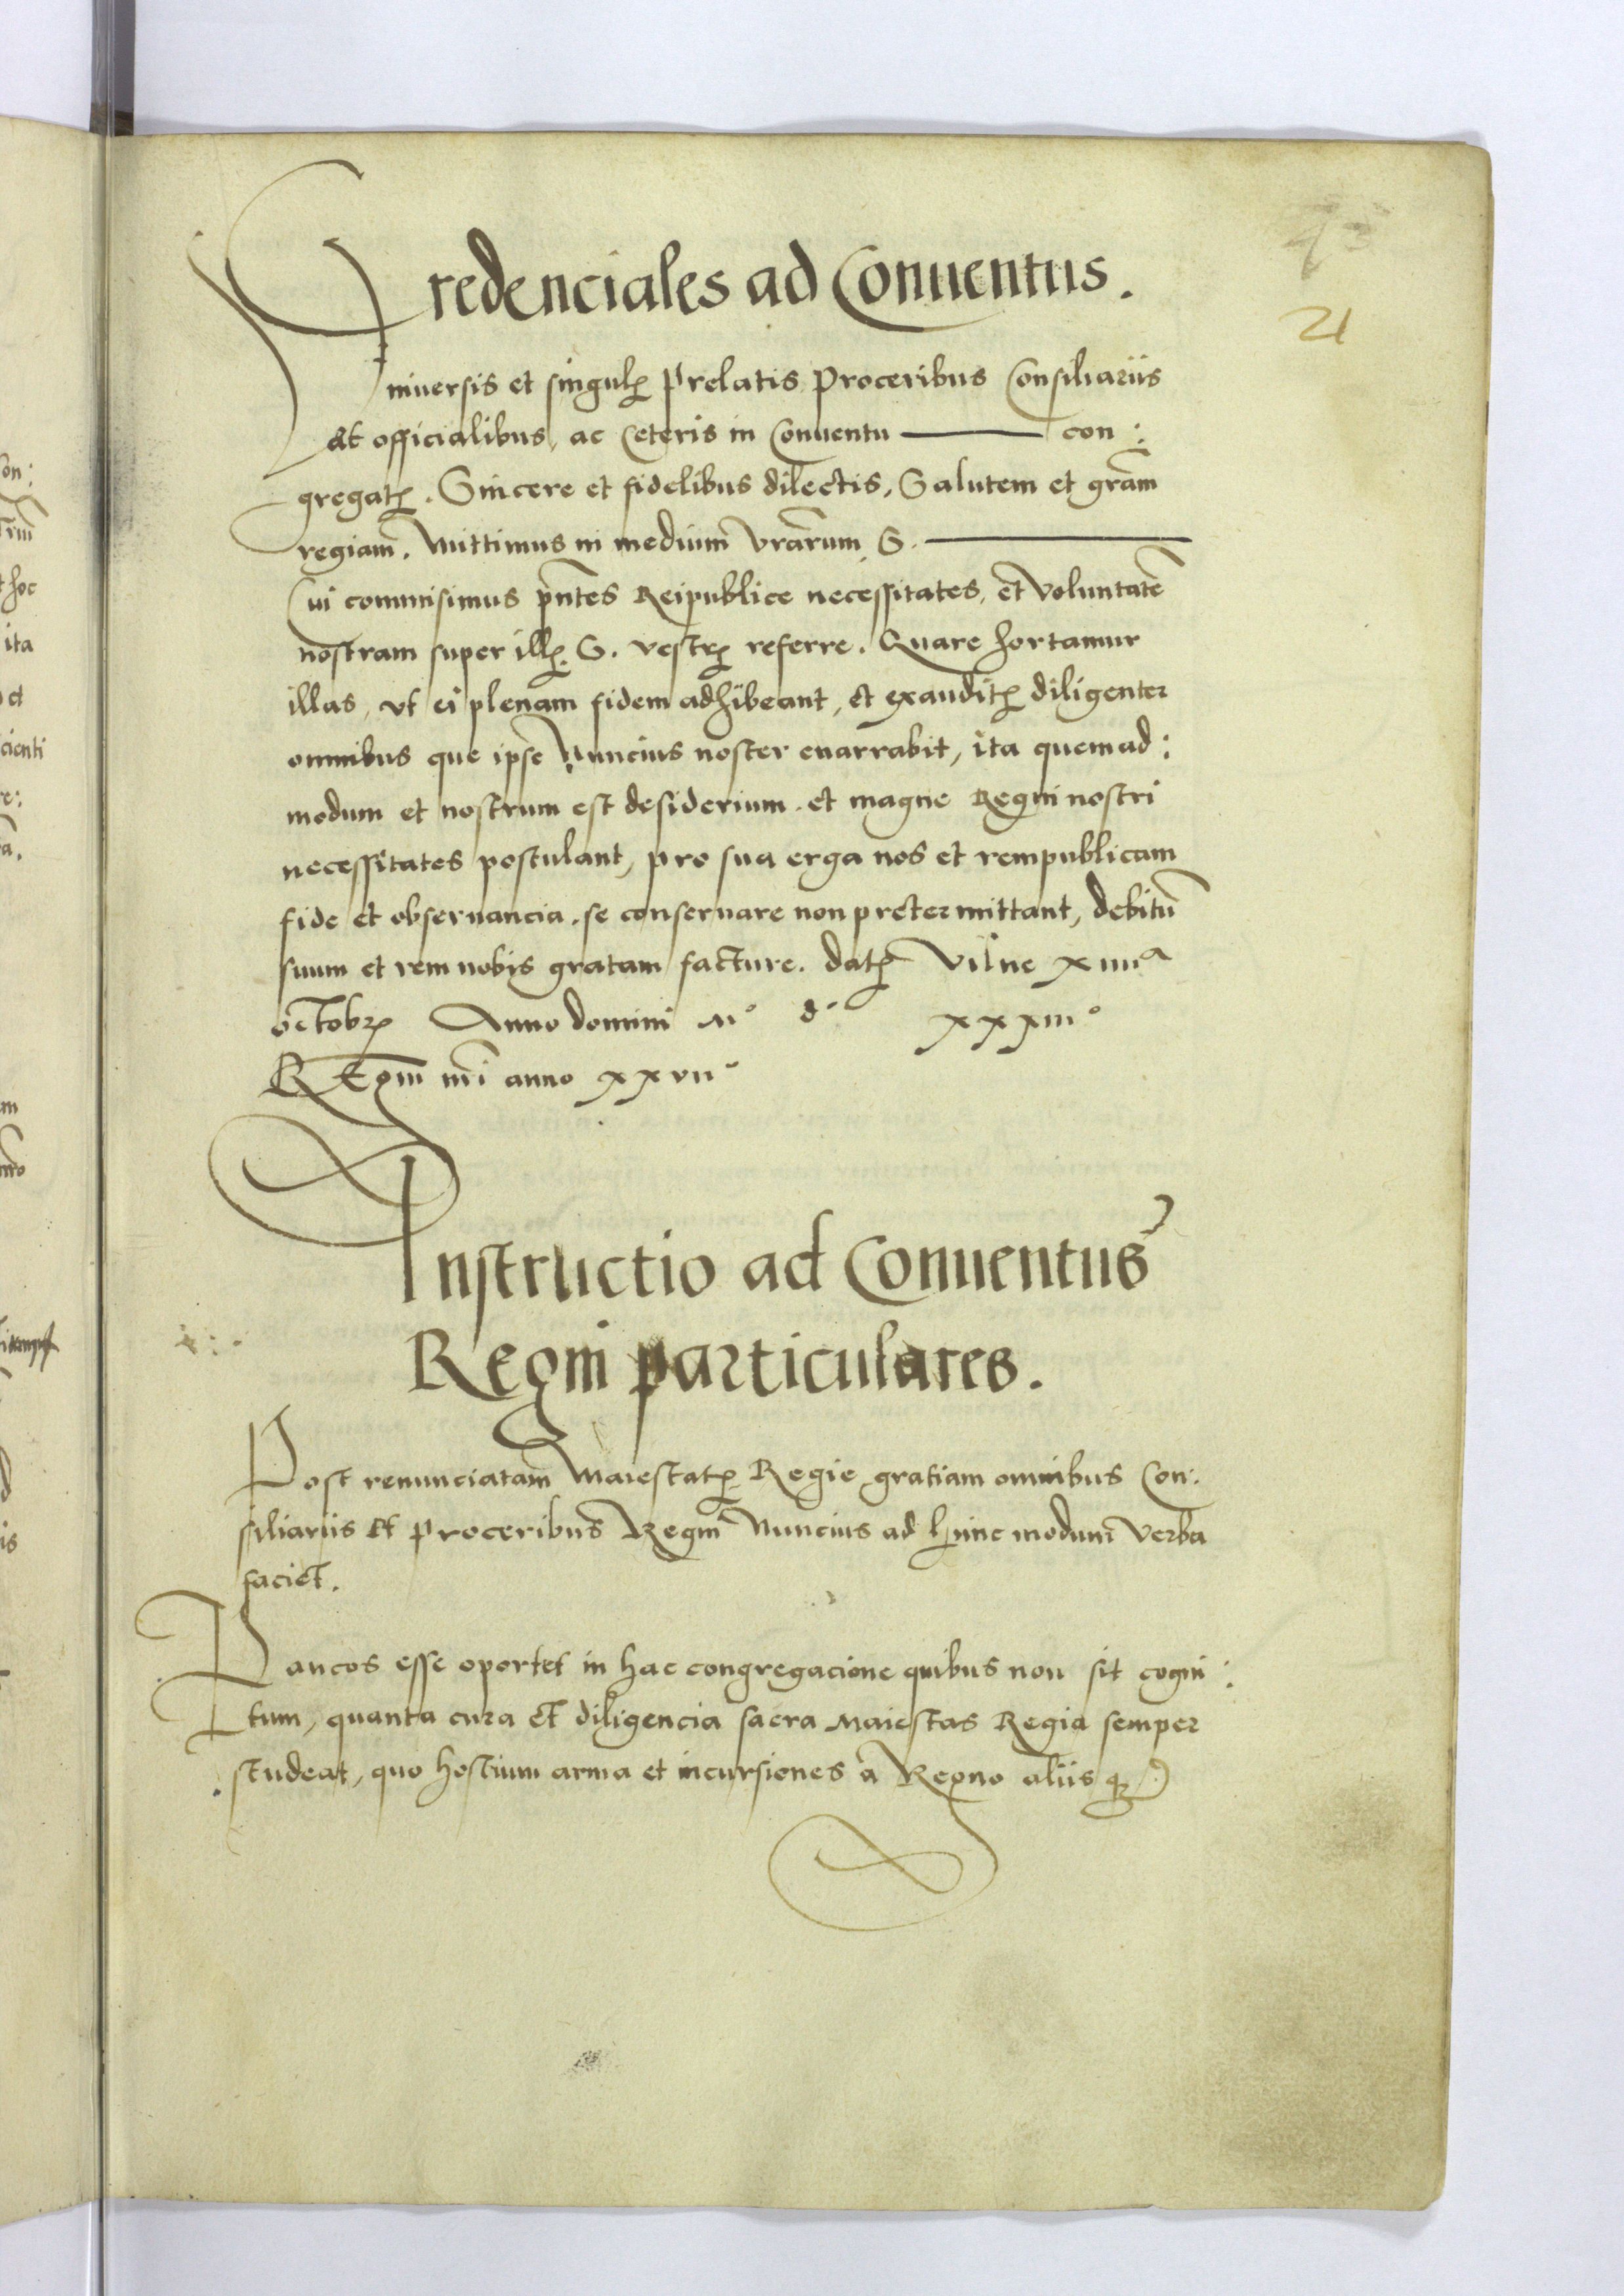 Credenciales ad Conuentus.
21
Vniuersis et singulꝭ prelatis proceribus Consiliariis
et officialibus, ac ceteris in Conuentu ——— con:
gregatꝭ. Sincere et fidelibus dilectis, Salutem et gram̄
regiam. Mittimus in medium vrārum S. ———
Cui commisimus pn̄tes Reipublice necessitates, et voluntatē
nostram super illꝭ S. vestrꝭ referre. Quare hortamur
illas, vt ei plenam fidem adhibeant, et exauditꝭ diligenter
omnibus que ipse Nuncius noster enarrabit, ita quemad:
modum et nostrum est desiderium. et magne Regni nostri
necessitates postulant, pro sua erga nos et rempublicam
fide et obseruancia. se conseruare non pretermittant, debitū
suum et rem nobis gratam facture. datꝭ Vilne xiiiiᵃ
octobrꝭ Anno domini Mº dº xxxiiiº
Regni nr̄i anno xxviiº
Instructio ad Conuentus
Regni particulares.
Post renunciatam Maiestatꝭ Regie gratiam omnibus Con:
siliariis et proceribus Regni Nuncius ad hunc modum verba
faciet.
Paucos esse oportet in hac congregacione quibus non sit cogni:
tum, quanta cura et diligencia sacra Maiestas Regia semper
studeat, quo hostium arma et incursiones a Regno aliisqꝫ